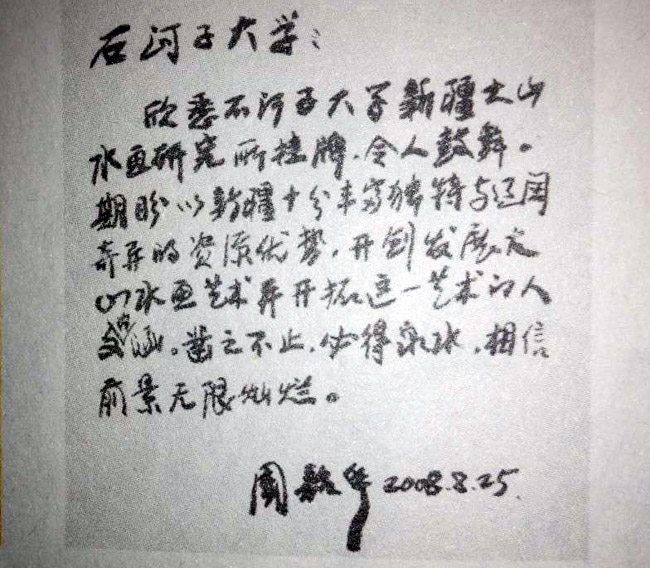 石河子大学：
欣悉石河子大学新疆大山
水画研究所挂牌，令人鼓舞。
期盼以新疆十分丰富独特与辽阔
奇异的资源优势，开创发展大
山水画艺术并开拓这一艺术的人
文内涵。凿之不止，必得泉水，相信
前景无限灿烂。
周 华 2008.8.25.